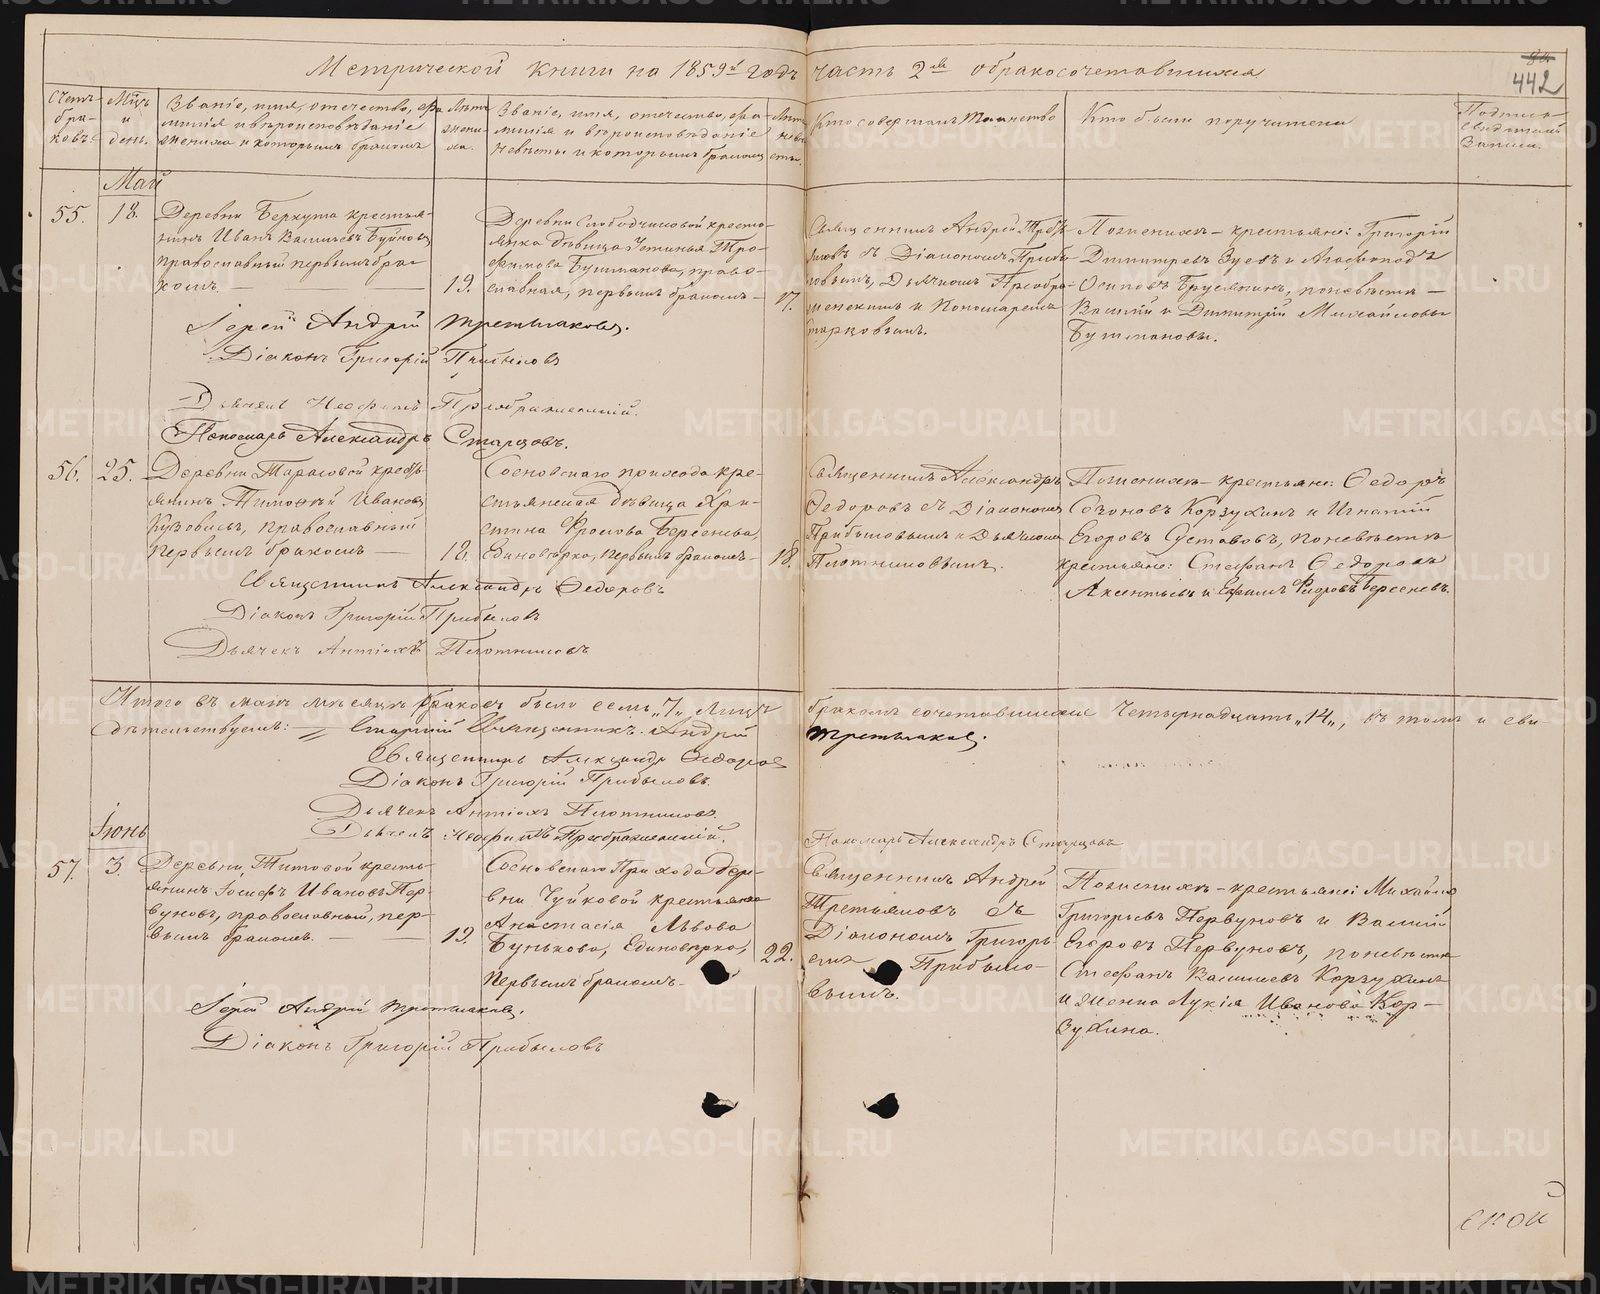 Метрической книги на 1859й годъ часть 2ая о бракосочетавшихся
442
Счетъ бра- ковъ.
Мѣсъ и день.
Званіе, имя, отечество, фа-
милія и вѣроисповѣданіе
жениха и которымъ бракомъ
Лѣта жени- ха.
Званіе, имя, отечество, фа-
милія и вѣроисповѣданіе
невѣсты и которымъ бракомъ
Лѣта невѣ сты.
Кто совершалъ Таинство
Кто были поручители
Подпись
свидетелей
записи.
Май
55. 18.
Деревни Беркута крестья-
нинъ Иванъ Васильевъ Буйновъ
православный первымъ бра-
комъ.
19.
Деревни Слободчиковой кресть-
янка дѣвица Устинья Тро-
фимова Бушманова, право-
славная, первымъ бракомъ
17.
Священникъ Андрей Третья-
ковъ съ Діакономъ Прибы-
ловымъ, Дьячкомъ Преобра-
женскимъ и Пономаремъ
Старцовымъ.
По женихѣ - крестьяне: Григорій
Дмитріевъ Зуевъ и
Осиповъ Бруснянинъ, по невѣстѣ
Василій и Димитрій Михайловы
Бушмановы.
Іерей Андрей Третьяковъ.
Діаконъ Григорій Прибыловъ
Дьячекъ Неофитъ Преображенскій.
Пономарь Александръ Старцовъ.
56. 25.
Деревни Тарасовой кресть-
янинъ Тимофей Ивановъ
Кузовковъ, православный
первымъ бракомъ
18.
Сосновскаго прихода кре-
стьянская дѣвица Хри-
стина Фролова Берсенева,
Единовѣрка, первымъ бракомъ
18.
Священникъ Александръ
Федоровъ съ Діакономъ
Прибыловымъ и Дьячкомъ
Плотниковымъ.
По женихѣ - крестьяне: Федоръ
Созоновъ Корзухинъ и Игнатій
Егоровъ Уставовъ, по невѣстѣ
крестьяне: Стефанъ Федоровъ
Аксентьевъ и Ефимъ Фроловъ Берсеневъ.
Священникъ Александръ Федоровъ
Діаконъ Григорій Прибыловъ
Дьячекъ Антіохъ Плотниковъ
Итого въ маѣ мѣсяцѣ браковъ было семь „7„ Лицъ бракомъ сочетавшихся Четырнадцать „14„, въ томъ и сви
дѣтельствуемъ: Старшій Священникъ Андрей Третьяковъ.
Священникъ Александръ Федоровъ
Діаконъ Григорій Прибыловъ.
Дьячекъ Антіохъ Плотниковъ.
Дьячекъ Неофитъ Преображенскій.
Пономарь Александръ Старцовъ
Іюнь
57. 3.
Деревни Титовой кресть-
янинъ Іосифъ Ивановъ Пер-
вуновъ, православный, пер-
вымъ бракомъ.
19.
Сосновскаго Прихода дере-
вни Чуйковой крестьянка
Анастасія Львова
Бунькова, Единовѣрка,
первымъ бракомъ.
22.
Священникъ Андрей
Третьяковъ съ
Діакономъ Григорь-
емъ Прибыло-
вымъ.
По женихѣ - крестьяне: Михайло
Григорьевъ Первуновъ и Василій
Егоровъ Первуновъ, по невѣстѣ
Стефанъ Васильевъ Корзухинъ
и женка Лукія Иванова Кор-
зухина.
Іерей Андрей Третьяковъ.
Діаконъ Григорій Прибыловъ
METRIKI.GASO-URAL.RU